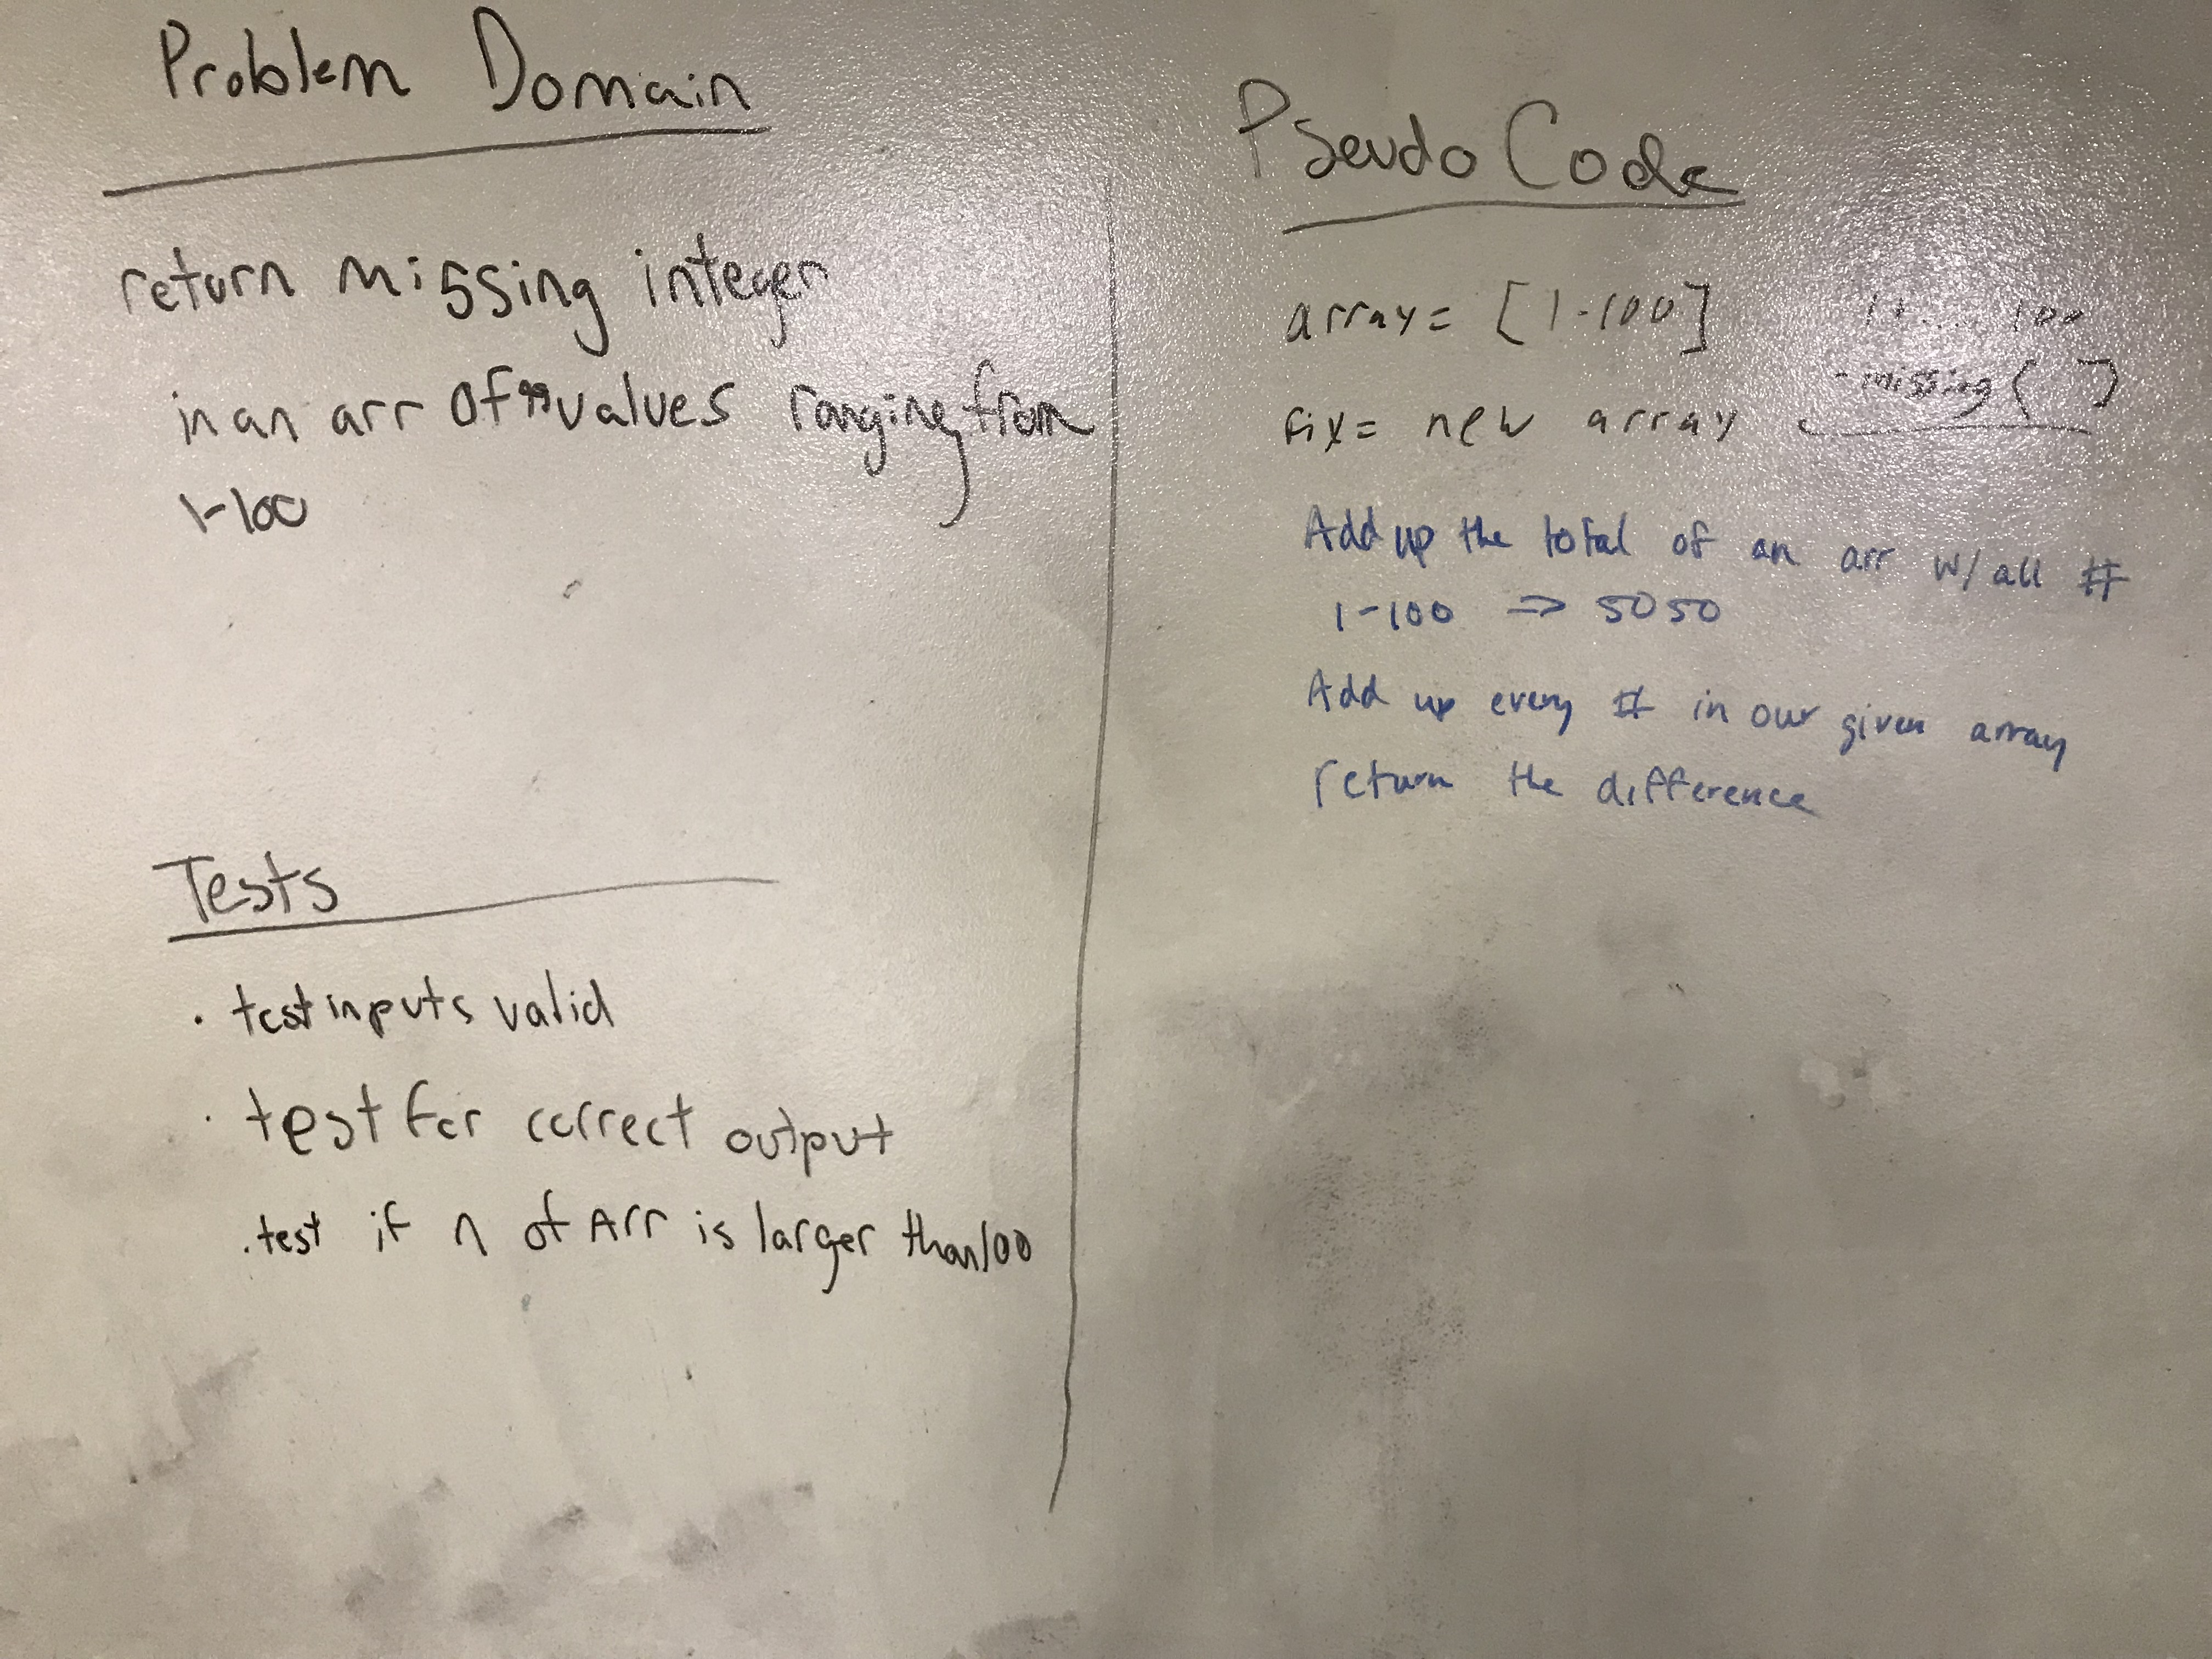 Problem Domain
return missing integer
in an arr of values ranging from
1-100
Tests
· test inputs valid
· test for correct output
. test if n of Arr is larger than 100
Pseudo Code
array = [1-100]
fix = new array
100
- missing [ ]
Add up the total of an arr w/ all #
1-100 => 5050
Add up every # in our given array
return the difference